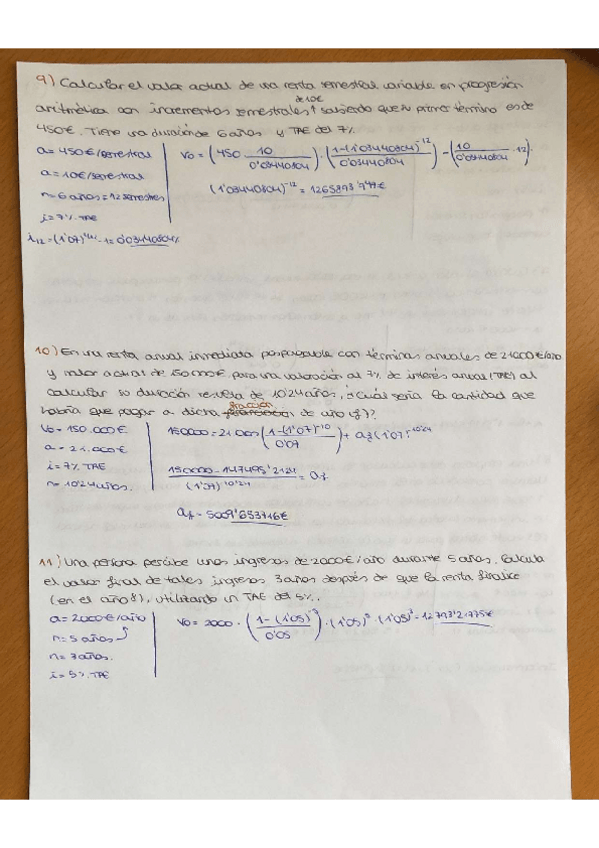 9) Calcular el valor actual de una renta semestral variable en progresión
de 10€
aritmética con incrementos semestrales↑ sabiendo que su primer término es de
450€. Tiene una duración de 6 años y TAE del 7%
a = 450€/semestral
V0 = (450 10/0'03440804) · (1-(1'03440804)^-12/0'03440804) - (10/0'03440804 · 12) ·
a = 10€/semestral
(1'03440804)^-12 =
n = 6 años = 12 semestres
i = 7% TAE
= (1'07) - 1 = 0'03440804%
10) En una renta anual inmediata pospagable con términos anuales de 21000€/año
y valor actual de 150000€ para una valoración al 7% de interés anual (TAE) al
calcular su duración resulta de 10'24 años, ¿Cuál sería la cantidad que
fracción
habría que pagar a dicha de año (f)?
V0 = 150.000€
150000 = 21.000 (1-(1'07)^-10/0'07) + af (1'07)^-10'24
a = 21.000€
i = 7% TAE
150000 - 147495'2124/(1'07)^-10'24 = af
n = 10'24 años.
af = 5009'653716€
11) Una persona percibe unos ingresos de 2000€/año durante 5 años. Calcula
el valor final de tales ingresos 3 años después de que la renta finalice
(en el año 8), utilizando un TAE del 5%.
a = 2000€/año
V0 = 2000 · (1-(1'05)^-5/0'05) · (1'05)^5 · (1'05)^3 = 12793'21775€
n = 5 años
n = 3 años.
i = 5% TAE